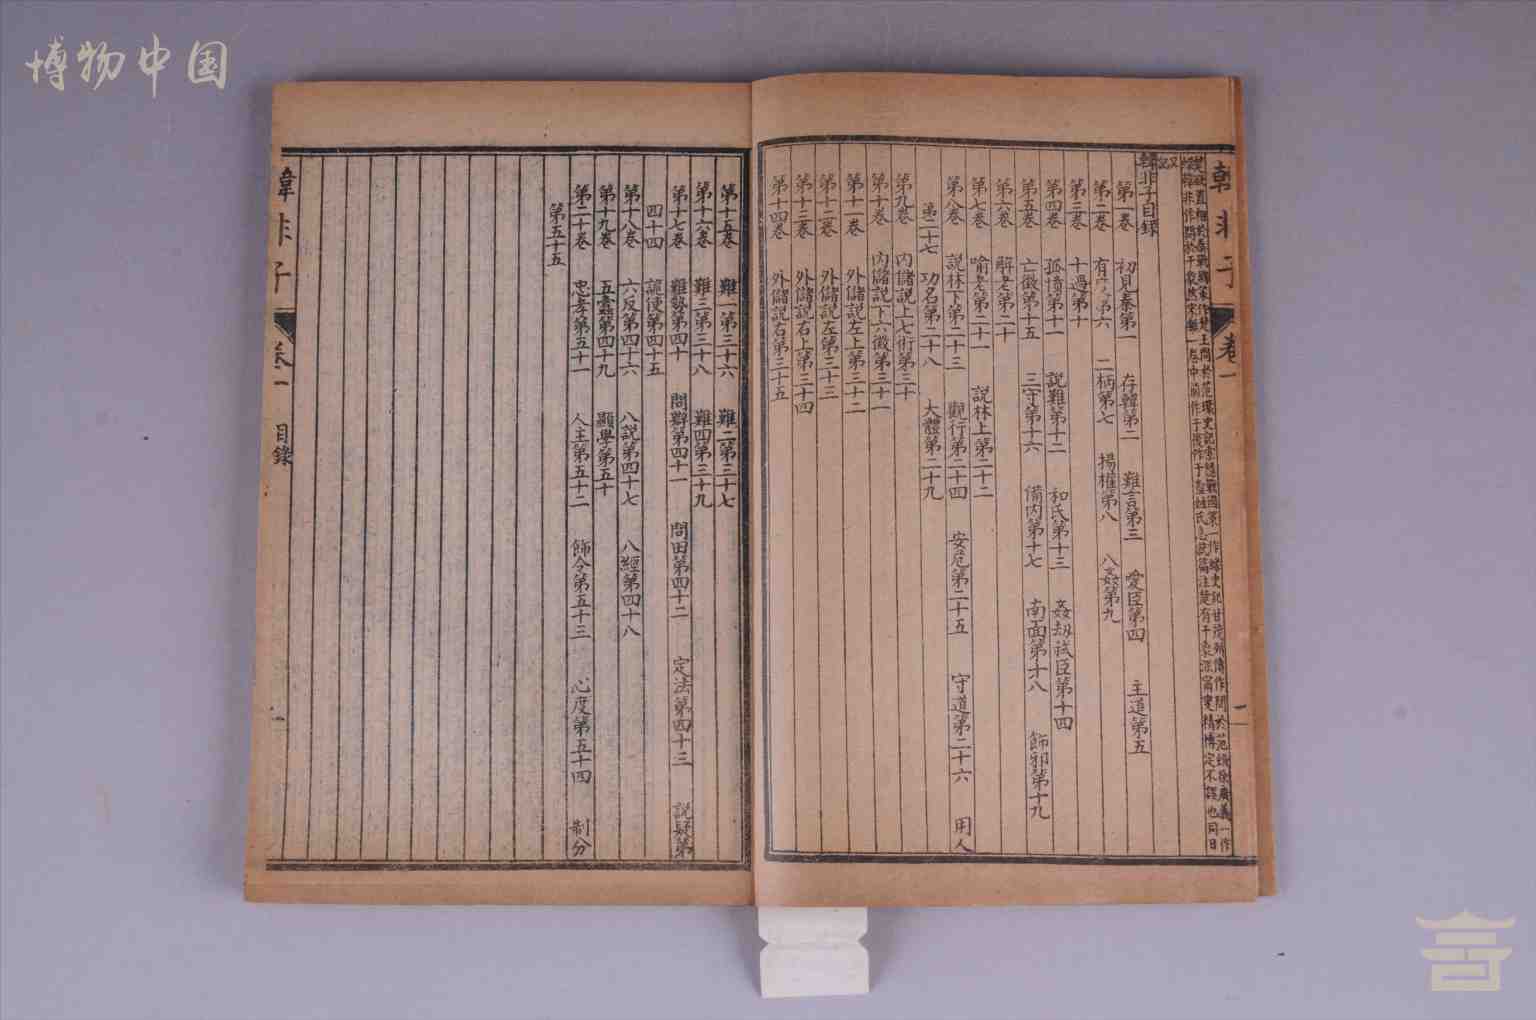 博物中国
韓非子 卷一 二
又記
韓非子目録
第一卷 初見秦第一 存韓第二 難言第三 愛臣第四 主道第五
第二卷 有度第六 二柄第七 揚權第八 八姦第九
第三卷 十過第十
第四卷 孤憤第十一 說難第十二 和氏第十三 姦劫弑臣第十四
第五卷 亡徵第十五 三守第十六 備内第十七 南面第十八 飾邪第十九
第六卷 解老第二十
第七卷 喻老第二十一 說林上第二十二
第八卷 說林下第二十三 觀行第二十四 安危第二十五 守道第二十六 用人
第二十七 功名第二十八 大體第二十九
第九卷 内儲說上七術第三十
第十卷 内儲說下六微第三十一
第十一卷 外儲說左上第三十二
第十二卷 外儲說左第三十三
第十三卷 外儲說右上第三十四
第十四卷 外儲說右第三十五
第十五卷 難一第三十六 難二第三十七
第十六卷 難三第三十八 難四第三十九
第十七卷 難勢第四十 問辯第四十一 問田第四十二 定法第四十三 說疑第
四十四 詭使第四十五
第十八卷 六反第四十六 八說第四十七 八經第四十八
第十九卷 五蠹第四十九 顯學第五十
第二十卷 忠孝第五十一 人主第五十二 飾令第五十三 心度第五十四 制分
第五十五
韓非子 卷一 目錄